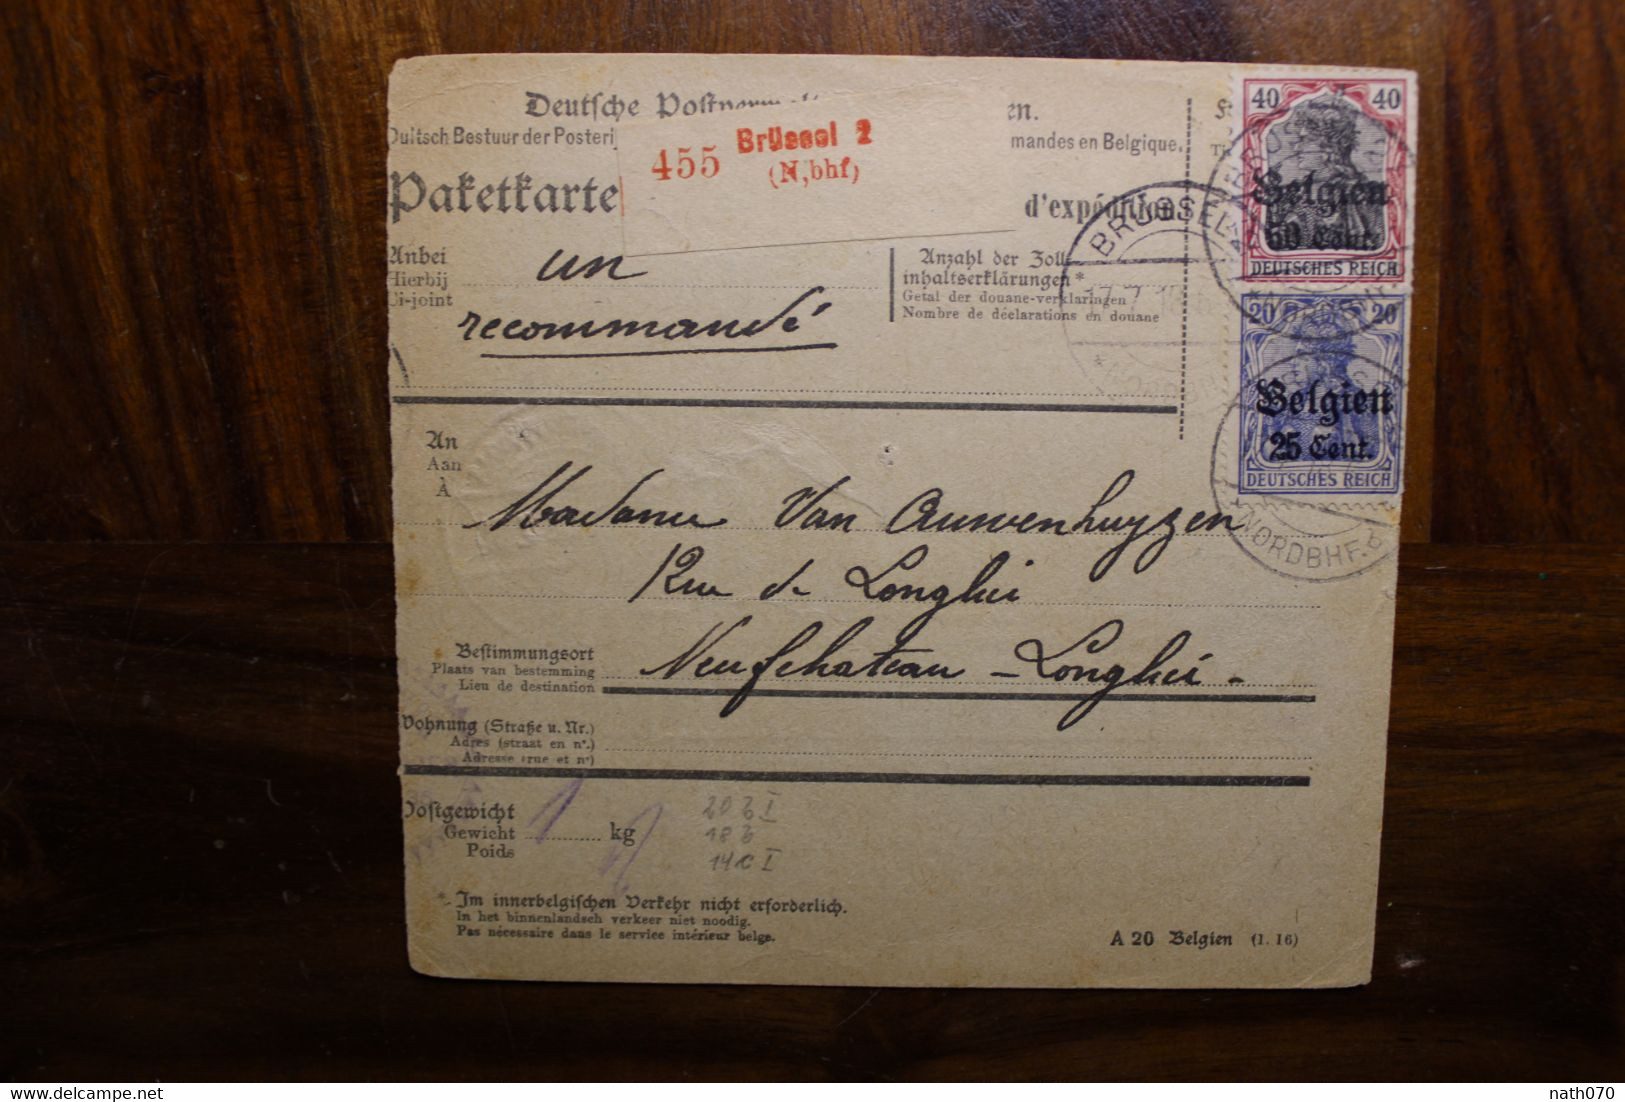 Deutsche
Duitsch Bestuur der Posterij
455 Brüssel 2
(N,bhf)
mandes en Belgique.
Paketkarte
d'expédition
Anbei
Hierbij
Ci-joint
un
recommandé
Anzahl der Zoll-
inhaltserklärungen*
Getal der douane-verklaringen
Nombre de déclarations en douane
40 40
Belgien
50 Cent.
DEUTSCHES REICH
20 20
Belgien
25 Cent.
DEUTSCHES REICH
BRÜSSEL
NORDBHF. b
An
Aan
À
Madame Van Auwenhuyzen
Rue de Longlier
Neufchateau - Longlier -
Bestimmungsort
Plaats van bestemming
Lieu de destination
Wohnung (Straße u. Nr.)
Adres (straat en nr.)
Adresse (rue et nr)
Postgewicht
Gewicht 1 kg
Poids
* Im innerbelgischen Verkehr nicht erforderlich.
In het binnenlandsch verkeer niet noodig.
Pas nécessaire dans le service intérieur belge.
A 20 Belgien (1. 16)
delcampe.net
nath070